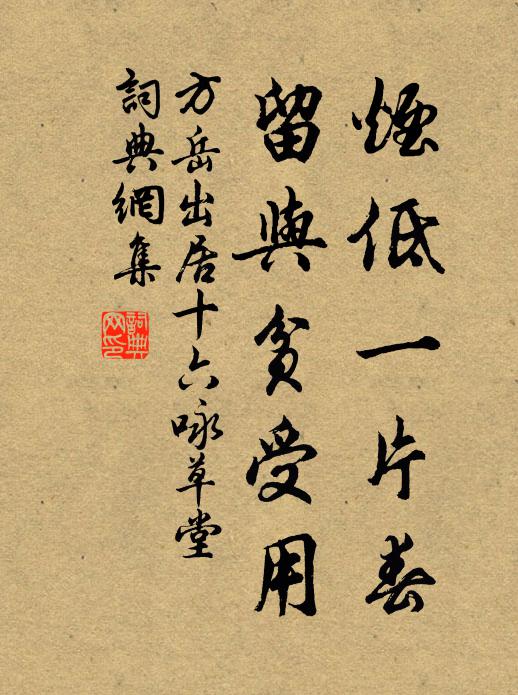 煙低一片春
留與貧受用
方岳出居十六咏草堂
詞典網集
詞典網印